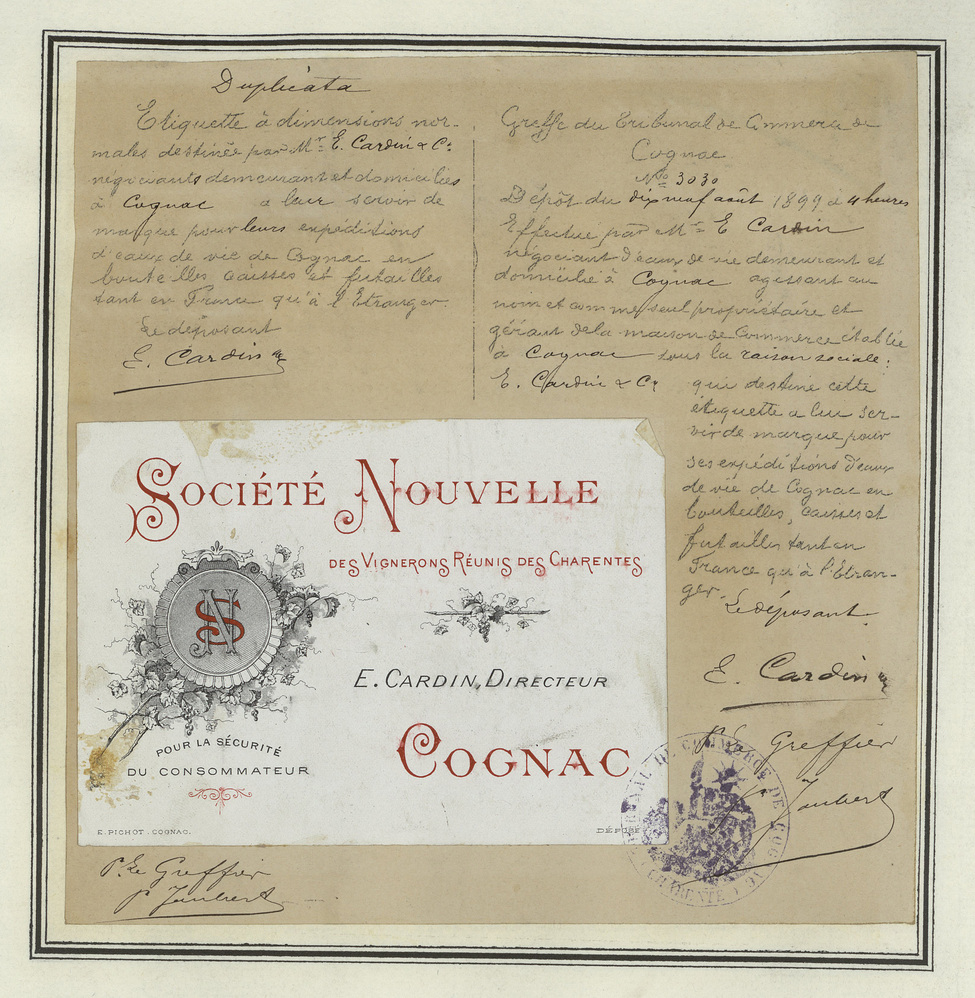 Duplicata
Etiquette à dimensions nor-
males destinée par Mr E. Cardin & Cie
négociants demeurant et domiciliés
à Cognac a leur servir de
marque pour leurs expéditions
d'eaux de vie de Cognac en
bouteilles caisses et futailles
tant en France qu'à l'Etranger.
Le déposant
E. Cardin
Greffe du Tribunal de Commerce de
Cognac
No 3030
Dépôt du dix neuf août 1899 à 4 heures
Effectué par Mr E Cardin
négociant d'eaux de vie demeurant et
domicilié à Cognac agissant au
nom et comme seul propriétaire et
gérant de la maison de Commerce établie
à Cognac sous la raison sociale:
E. Cardin & Cie qui destine cette
étiquette a lui ser-
vir de marque pour
ses expéditions d'eaux
de vie de Cognac en
bouteilles, caisses et
futailles tant en
France qu'à l'Etran-
ger. Le déposant.
E. Cardin
SOCIÉTÉ NOUVELLE
DES VIGNERONS RÉUNIS DES CHARENTES
SN
E. CARDIN, DIRECTEUR
COGNAC
POUR LA SÉCURITÉ
DU CONSOMMATEUR
E. PICHOT. COGNAC.
DÉPOSÉ
P. Le Greffier
Jaubert
TRIBUNAL DE COMMERCE DE COGNAC
CHARENTE
P. Le Greffier
P Jaubert